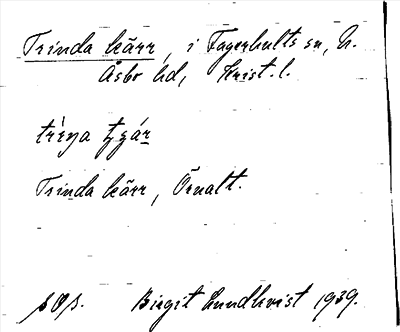 Trinda kärr, i Fagerhults sn, N.
Åsbo hd, Krist. l.
Trinda kärr, Örnalt.
Birgit Lundkvist 1939.